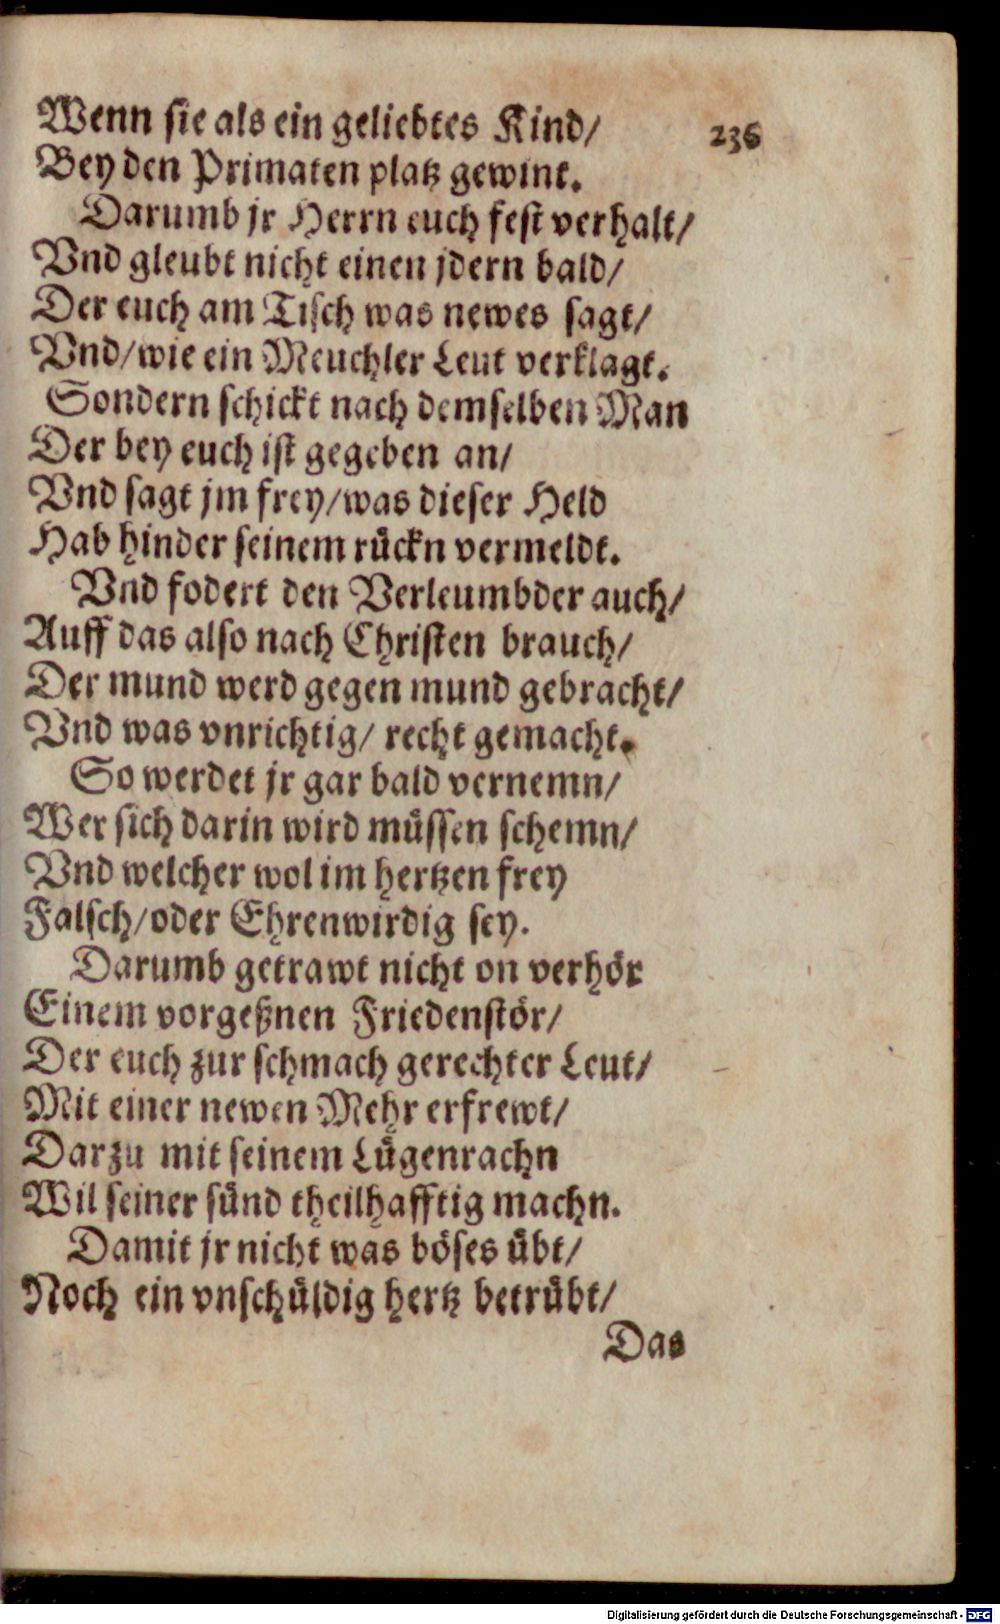 Wenn sie als ein geliebtes Kind/
236
Bey den Primaten platz gewint.
Darumb jr Herrn euch fest verhalt/
Vnd gleubt nicht einen jdern bald/
Der euch am Tisch was newes sagt/
Vnd/wie ein Meuchler Leut verklagt.
Sondern schickt nach demselben Man
Der bey euch ist gegeben an/
Vnd sagt jm frey/was dieser Held
Hab hinder seinem rückn vermeldt.
Vnd fodert den Verleumbder auch/
Auff das also nach Christen brauch/
Der mund werd gegen mund gebracht/
Vnd was vnrichtig/ recht gemacht.
So werdet jr gar bald vernemn/
Wer sich darin wird müssen schemn/
Vnd welcher wol im hertzen frey
Falsch/oder Ehrenwirdig sey.
Darumb getrawt nicht on verhör
Einem vorgeßnen Friedenstör/
Der euch zur schmach gerechter Leut/
Mit einer newen Mehr erfrewt/
Darzu mit seinem Lügenrachn
Wil seiner sünd theilhafftig machn.
Damit jr nicht was böses übt/
Noch ein vnschüldig hertz betrübt/
Das
Digitalisierung gefördert durch die Deutsche Forschungsgemeinschaft - DFG